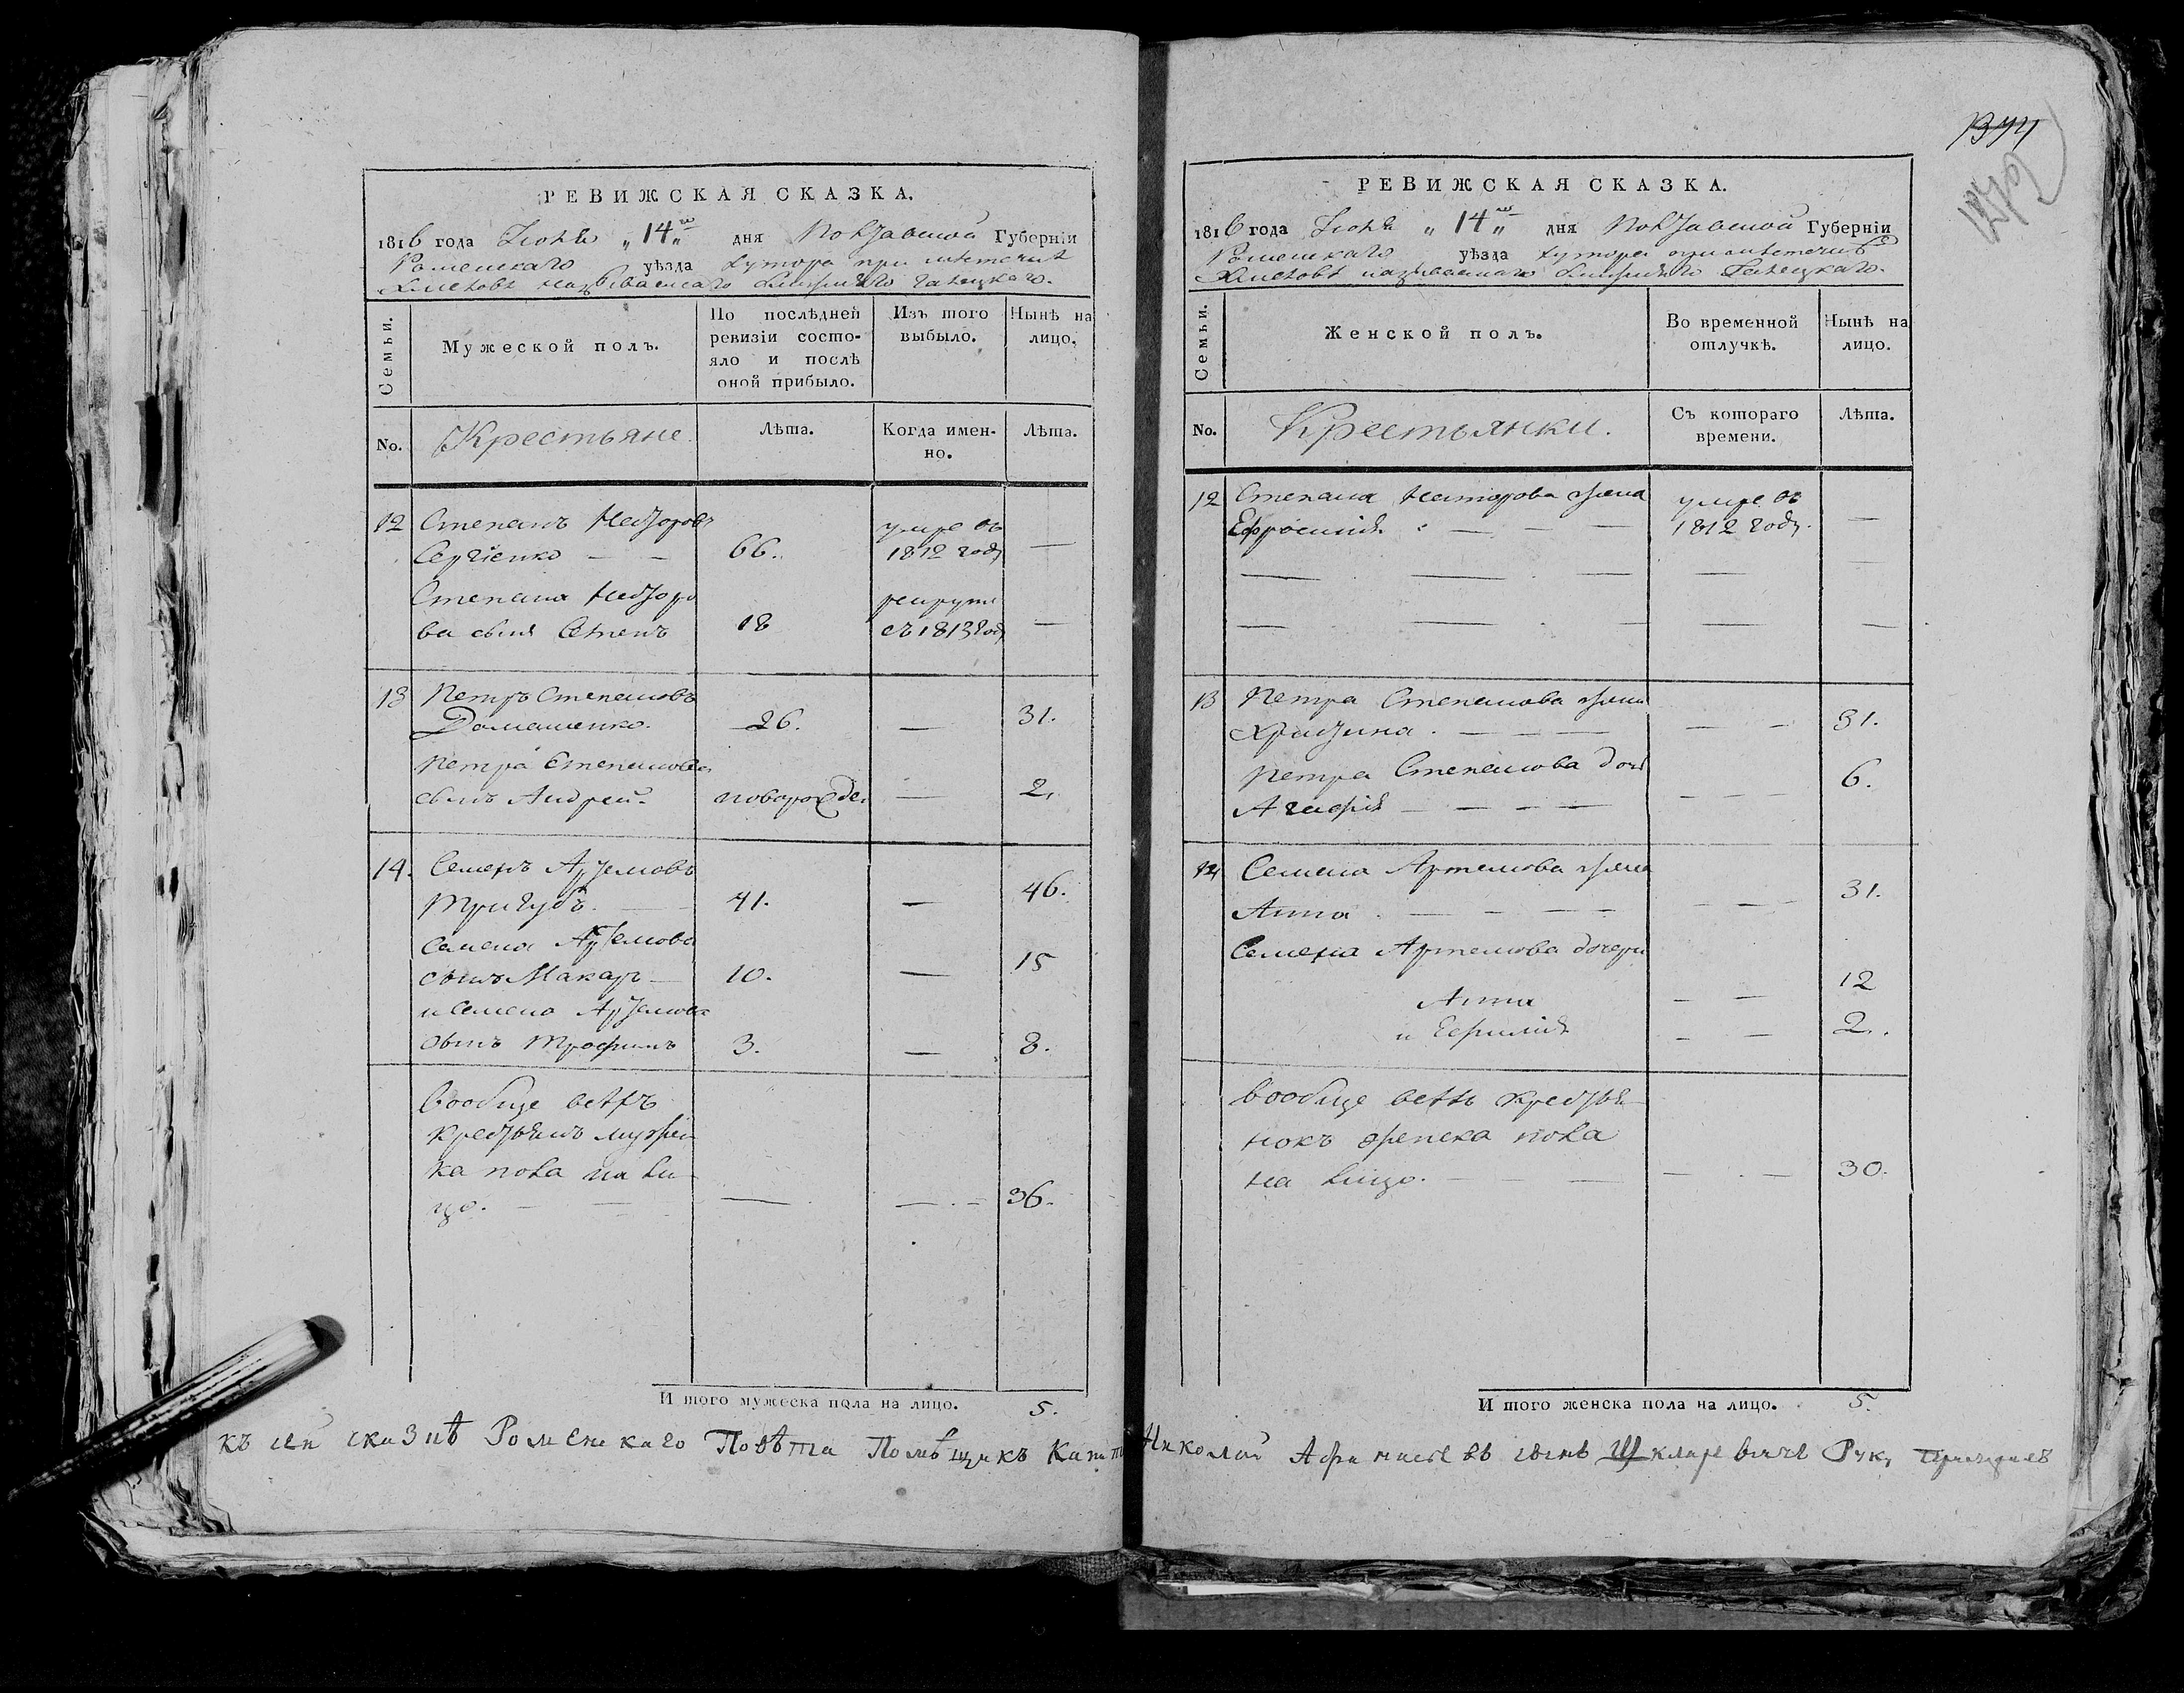 РЕВИЖСКАЯ СКАЗКА.
1816 года Іюня „14„го дня Полтавской Губерніи
Роменскаго уѣзда хутора при мѣстечкѣ
называемаго
Семьи.
Мужеской полъ.
По послѣдней ревизіи состо-
яло и послѣ
оной прибыло.
Изъ того
выбыло.
Нынѣ на
лицо.
No.
Крестьяне
Лѣта.
Когда имен-
но.
Лѣта.
12 Степанъ
Сергіенко — — 66. умре въ 1812 году —
Степана
ва сынъ Семенъ 18 рекрутъ съ 1813 году —
13 Петръ Степановъ
Домашенко. 26. — 31.
Петра Степанова
сынъ Андрей. новорожде. — 2.
14. Семенъ Артемовъ
Тригубъ. — 41. — 46.
Семена Артемова
сынъ Макаръ — 10. — 15
и Семена Артемова
сынъ Трофимъ 3. — 8.
вообще всѣхъ
крестьянъ мужес
ка пола на ли-
цо. — — — — . — 36.
И того мужеска пола на лицо. 5.
1344
РЕВИЖСКАЯ СКАЗКА.
1816 года Іюня „14„го дня Полтавской Губерніи
Роменскаго уѣзда хутора при мѣстечкѣ
называемаго
Семьи.
Женской полъ.
Во временной
отлучкѣ.
Нынѣ на
лицо.
No.
Крестьянки.
Съ котораго
времени.
Лѣта.
12 Степана жена
Ефросинія — — — умре въ 1812 году. —
13 Петра Степанова жена
Христина. — — — — — 31.
Петра Степанова дочь
Агафія — — — — — — — 6.
14 Семена Артемова жена
Анна. — — — — — — — 31.
Семена Артемова дочери
Анна — — 12
и Ефимія — — 2.
вообще всѣхъ крестья-
нокъ женска пола
на лицо. — — — — . — 30.
И того женска пола на лицо. 5.
къ сей сказкѣ Роменскаго Повѣта Помѣщикъ Капит Николай сынъ Шкляревичъ Рук,